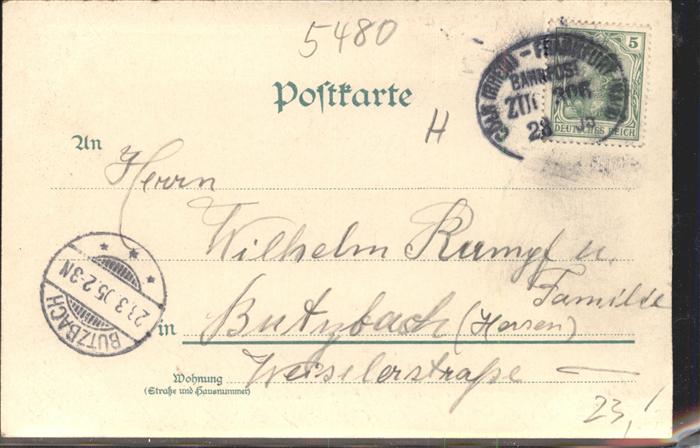 5480
5
DEUTSCHES REICH
BAHNPOST
ZUG
23
Postkarte
H
An
Herrn
Wilhelm Rumpf u.
Familie
in Butzbach (Hessen)
Wohnung
(Straße und Hausnummer)
Weiselerstraße
BUTZBACH
23.3.05.2-3N
23,